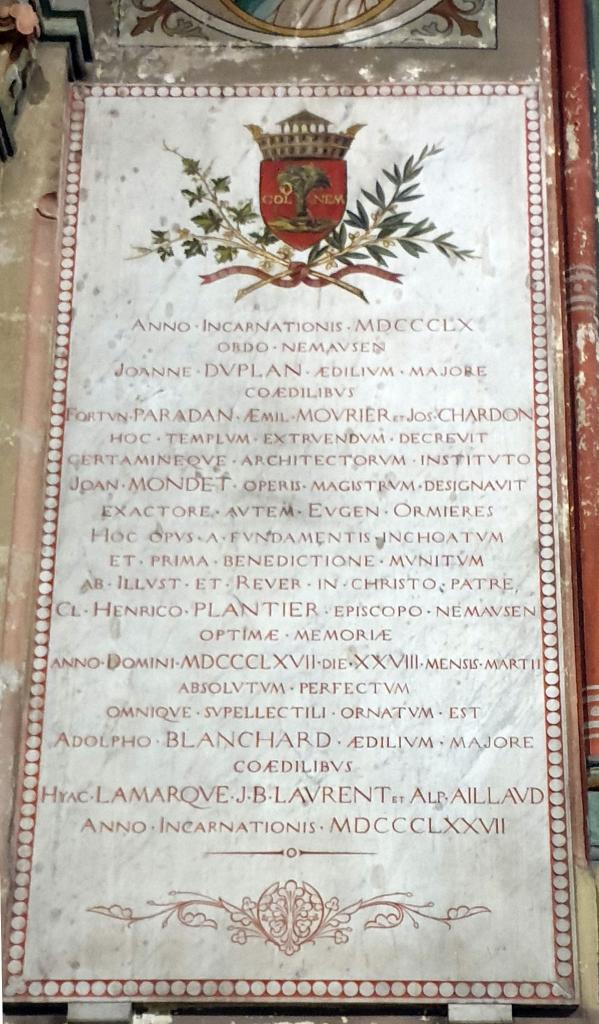 COL NEM
ANNO · INCARNATIONIS · MDCCCLX
ORDO · NEMAVSEN
JOANNE · DVPLAN · ÆDILIVM · MAJORE
COÆDILIBVS
FORTVN · PARADAN · ÆMIL · MOVRIER ET JOS · CHARDON
HOC · TEMPLVM · EXTRVENDVM · DECREVIT
CERTAMINEQVE · ARCHITECTORVM · INSTITVTO
JOAN · MONDET · OPERIS · MAGISTRVM · DESIGNAVIT
EXACTORE · AVTEM · EVGEN · ORMIERES
HOC OPVS · A · FVNDAMENTIS · INCHOATVM
ET · PRIMA · BENEDICTIONE · MVNITVM
AB · ILLVST · ET · REVER · IN · CHRISTO · PATRE,
CL · HENRICO · PLANTIER · EPISCOPO · NEMAVSEN
OPTIMÆ · MEMORIÆ
ANNO · DOMINI · MDCCCLXVII · DIE · XXVIII · MENSIS · MARTII
ABSOLVTVM · PERFECTVM
OMNIQVE · SVPELLECTILI · ORNATVM · EST
ADOLPHO · BLANCHARD · ÆDILIVM · MAJORE
COÆDILIBVS
HYAC · LAMARQVE · J · B · LAVRENT ET ALP · AILLAVD
ANNO · INCARNATIONIS · MDCCCLXXVII